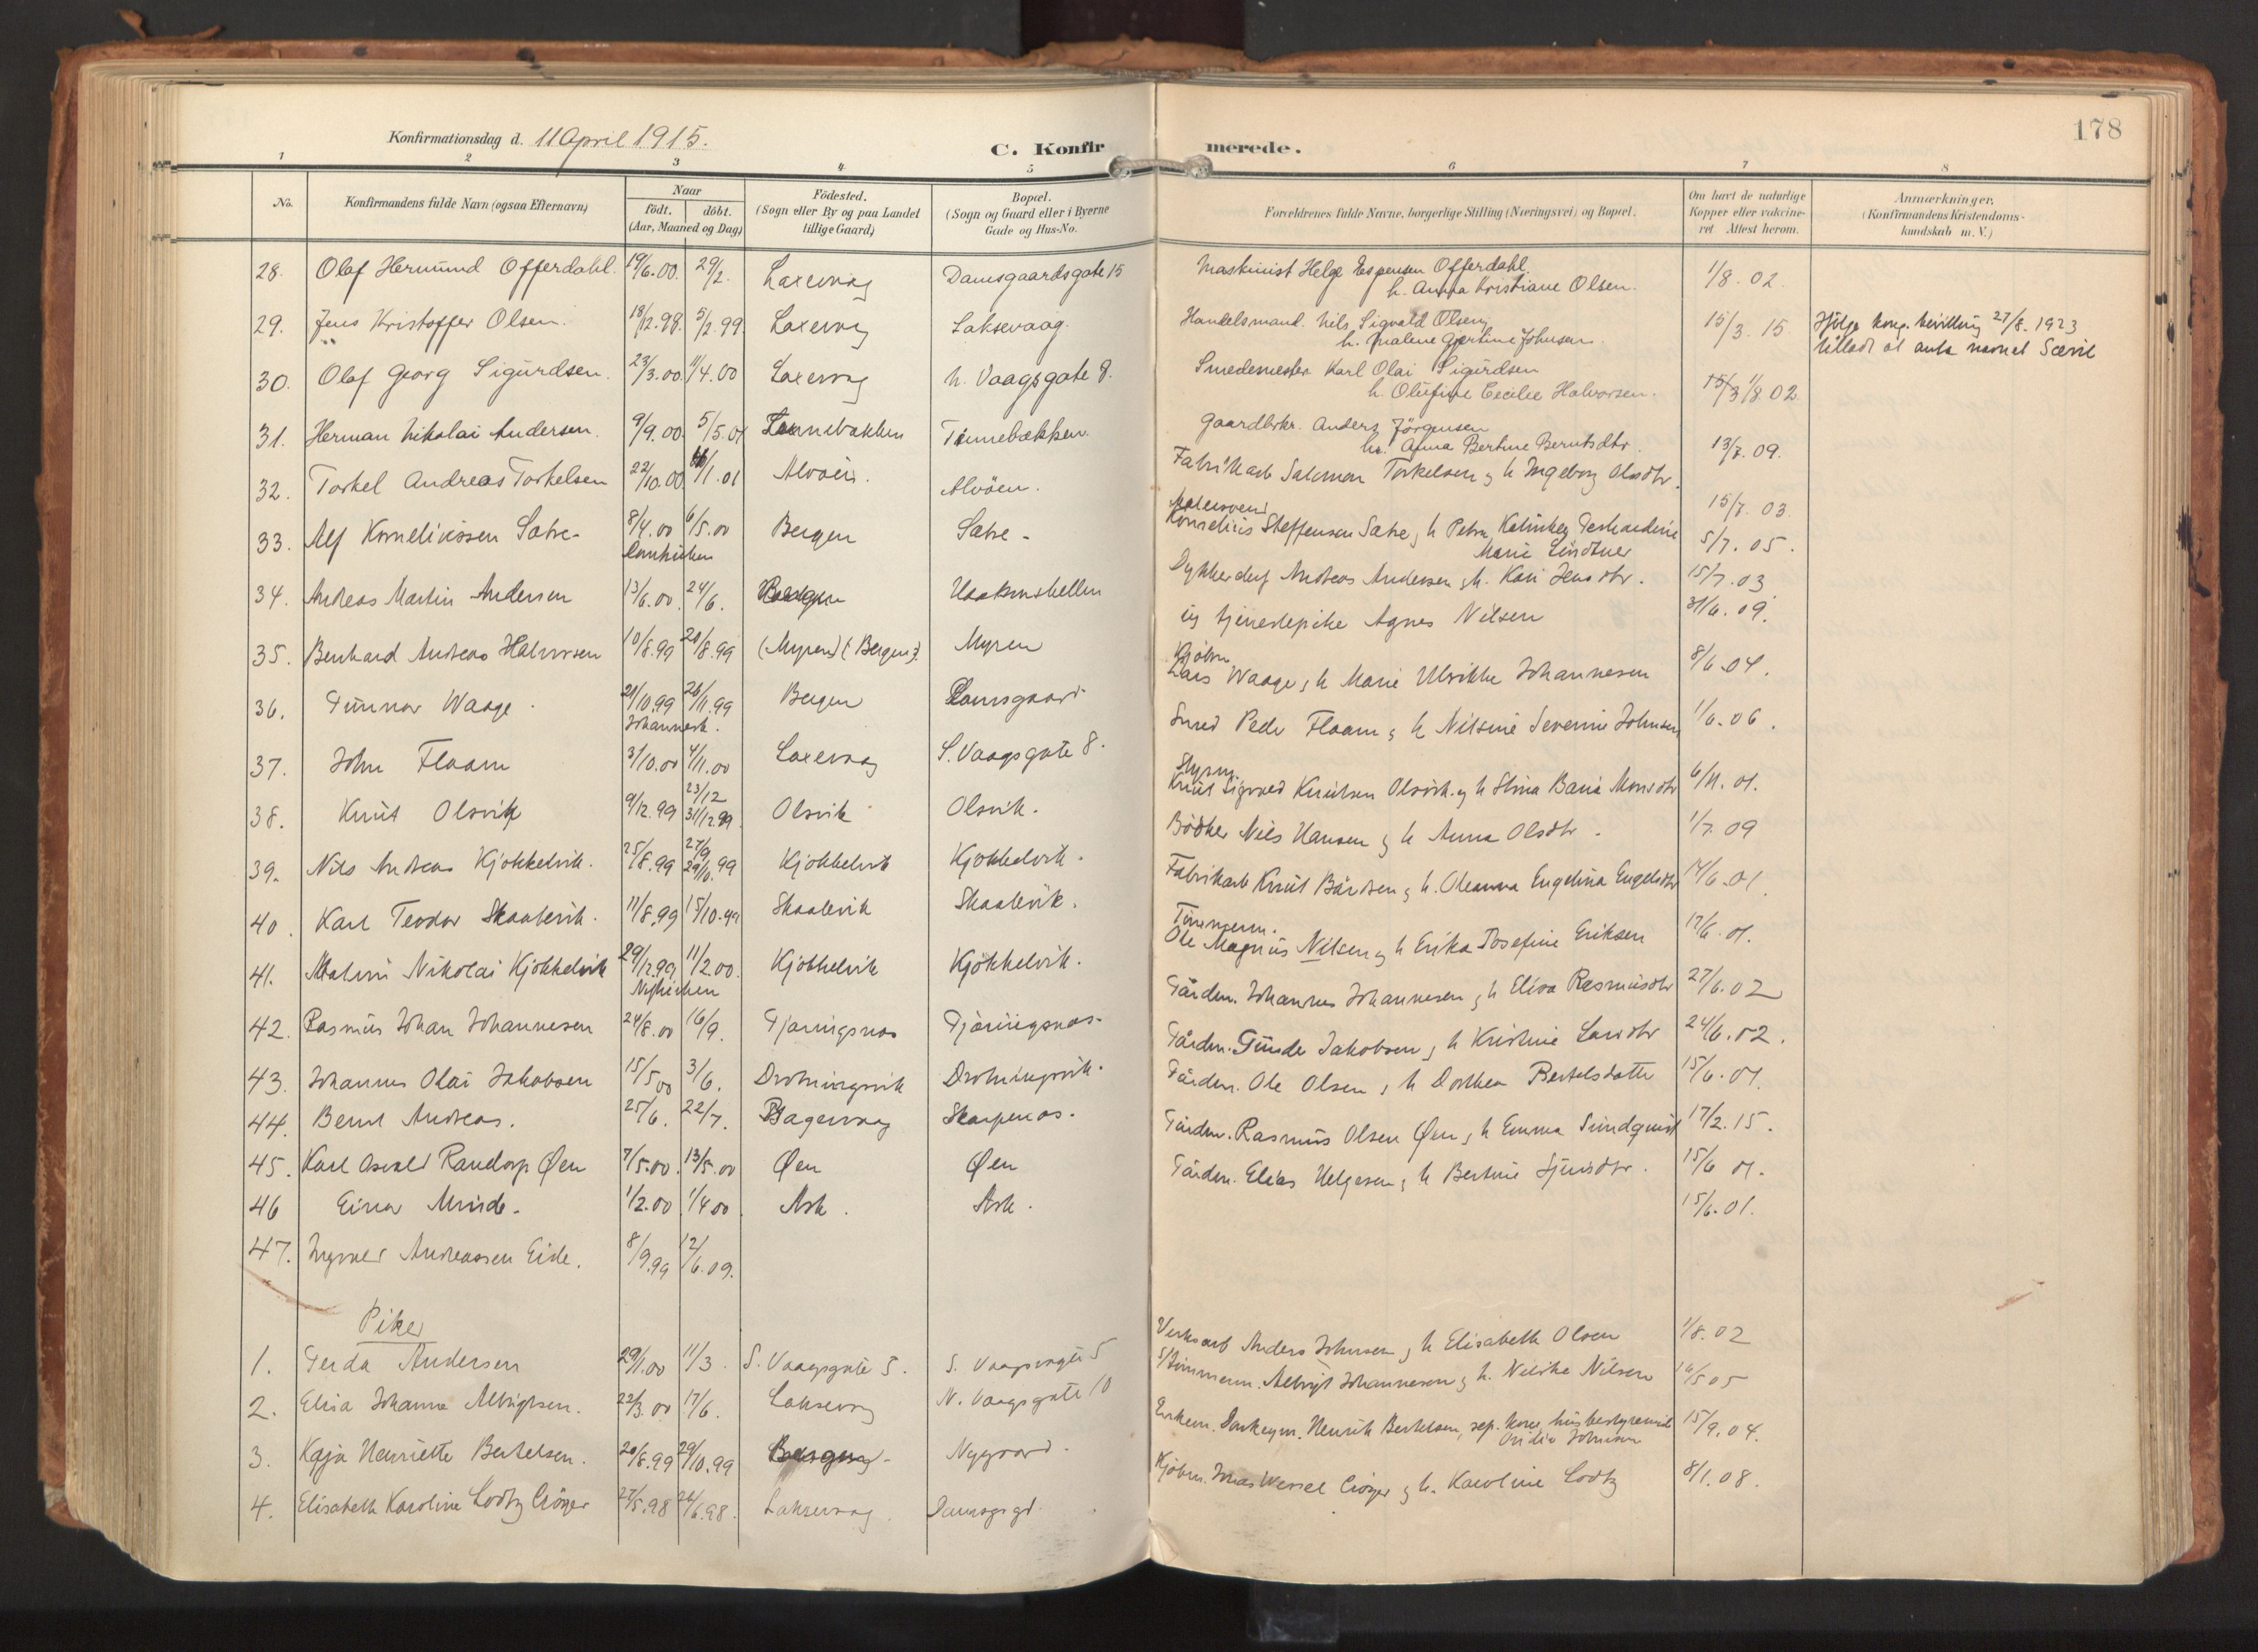 178
Konfirmationsdag d. 11 April 1915.
C. Konfirmerede.
1 2 3 4 5 6 7 8
No.
Konfirmandens fulde Navn (ogsaa Efternavn)
Naar
födt. döbt.
(Aar, Maaned og Dag)
Födested.
(Sogn eller By og paa Landet
tillige Gaard)
Bopæl.
(Sogn og Gaard eller i Byerne
Gade og Hus-No.
Forældrenes fulde Navne, borgerlige Stilling (Næringsvei) og Bopæl.
Om havt de naturlige
Kopper eller vakcine-
ret Attest herom.
Anmærkninger.
(Konfirmandens Kristendoms-
kundskab m. V.)
28. Olaf Hermund Offerdahl. 19/6.00. 29/2. Laxevaag Damsgaardsgate 15 Maskinist Helge Espensen Offerdahl. 1/8. 02.
h. Anna Kristiane Olsen.
29. Jens Kristoffer Olsen. 18/12.98. 5/2.99. Laxevaag Laksevaag. Handelsmand. Nils Sigvald Olsen 15/3. 15. Ifölge kong. bevilling 27/8. 1923
h. Malene Gjertine Johnsen. tilladt at anta navnet Sævil
30. Olaf Georg Sigurdsen. 23/3.00. 11/4.00 Laxevaag N. Vaagsgate 8. Smedemester Karl Olai Sigurdsen
h. Olufine Cecilie Halvorsen. 15/3 1/8.02.
31. Herman Nikolai Andersen. 9/9.00. 5/5.01 Tennebækken Tennebækken. Gaardbrkr. Anders Jörgensen
h. Anna Bertine Berntsdtr. 13/7. 09.
32. Torkel Andreas Torkelsen 22/10.00. 1.01 Alvöen. Alvöen. Fabrikarb Salomon Torkelsen og h Ingeborg Olsdtr. 15/7. 03.
33. Alf Korneliussen Sætre 8/4.00 6/5.00 Bergen Sætre - Kornelius Steffensen Sætre, h Petra
Marie Lindtner 5/7. 05.
34. Andreas Martin Andersen 13/6.00. 24/6. Haakonshellen Andreas Andersen, h. Kari Jensdtr. 15/7. 03
35. Bernhard Andreas Halvorsen 10/8.99 20/8.99 (Myren) (Bergen). Myren ug tjenestepike Agnes Nilsen 31/6. 09.
36. Gunnar Waage. 29/10.99 26/11.99 Bergen Damsgaard Kjöbm. Lars Waage, h Marie Ulrikke Johannesen 8/6.04.
37. John Flaam 3/10.00 4/11.00 Laxevaag S. Vaagsgate 8. Smed Peder Flaam, h Nilsine Severine Johnsen 1/6.06.
38. Knut Olsvik 9/12.99 23/12 31/12 99. Olsvik Olsvik. Styrm. Knut Sigvard Knutsen Olsvik. og h Stina Monsdtr 6/11. 01.
39. Nils Andreas Kjökkelvik. 25/8.99 27/9 99 Kjökkelvik Kjökkelvik. Bödker Nils Hansen og h Anna Olsdtr. 1/7. 09
40. Karl Teodor Skaalevik. 11/8.99 15/10.99 Skaalevik Skaalevik. Fabrikarb Knut Bårdsen, h. Oleanna Engelina Engelsdtr 14/6.01.
41. Malvin Nikolai Kjökkelvik 29/12.99 11/2.00. Kjökkelvik Kjökkelvik. Tömmerm. Ole Magnus Nilsen og h Erika Josefine Eriksen 17/6. 01.
Nykirken
42. Rasmus Johan Johannesen 24/8.00 16/9. Gjæringsnæs Gjæringsnæs. Gårdm. Johannes Johannesen, h Elisa Rasmusdtr 27/6. 02
43. Johannes Olai Jakobsen 15/5 00 3/6. Drotningsvik Drotningsvik. Gårdm. Gunder Jakobsen, h Kristine Larsdtr 24/6. 02.
44. Bernt Andreas. 25/6. 22/7. Skarpenæs. Gårdm. Ole Olsen, h Dorthea Bertelsdatter 15/6. 01.
45. Karl Osvald Randorp Øen 7/5.00. 13/5.00 Øen Øen Gårdm. Rasmus Olsen Øen, h Emma Sundquist 17/2. 15.
46 Einar Minde. 1/2.00 1/4 00 Ask. Ask. Gårdm. Elias Helgesen, h Bertine 15/6 01.
47. Ingvald Andreassen Eide. 8/9.99 12/6.09. 15/6. 01.
Piker
1. Gerda Andersen 29/1.00 11/3. S. Vaagsgate 5. S. Vaagsgate 5 Verksarb Anders Johnsen, h Elisabeth Olsen 1/8. 02
2. Elisa Johanne Albrigtsen. 22/3.00 17/6. Laksevaag N. Vaagsgate 10 Albrigt Johannesen, h. Nilsen 16/5 05
3. Kaja Henriette Bertelsen. 20/8.99 29/10.99 Nygaard. Henrik Bertelsen, sep. kone, husbestyrerinde 15/9. 04.
Ovidia Johnsen
4. Elisabeth Karoline Lodtz Cröger 27/5.98 26/6.98. Laksevaag. Damsgsgd. Kjöbm. Jonas Wessel Cröger og h. Karoline Lodtz 8/1. 08.